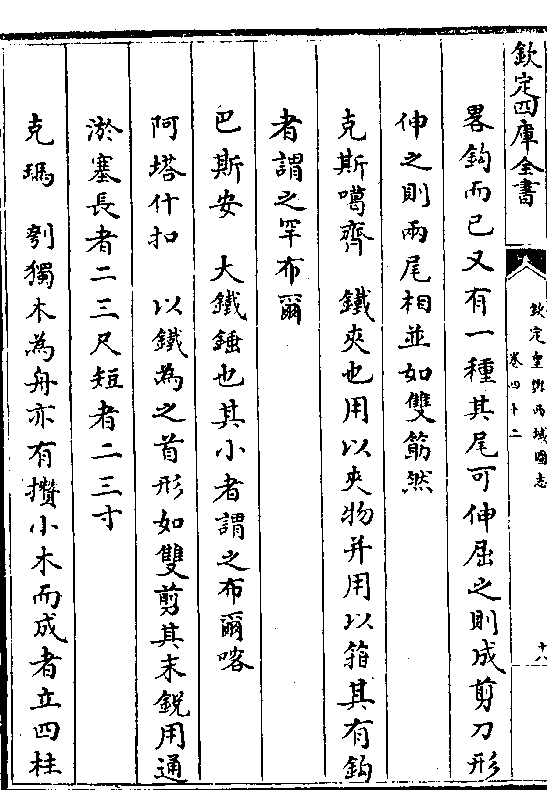 欽定四庫全書
欽定皇輿西域圖志
卷四十二
十八
畧鈎而已又有一種其尾可伸屈之則成剪刀形
伸之則兩尾相並如雙筯然
克斯噶齊　鐵夾也用以夾物并用以箝其有鈎
者謂之罕布爾
巴斯安　大鐵錘也其小者謂之布爾喀
阿塔什扣　以鐵為之首形如雙剪其末鋭用通
淤塞長者二三尺短者二三寸
克瑪　刳獨木為舟亦有攢小木而成者立四柱